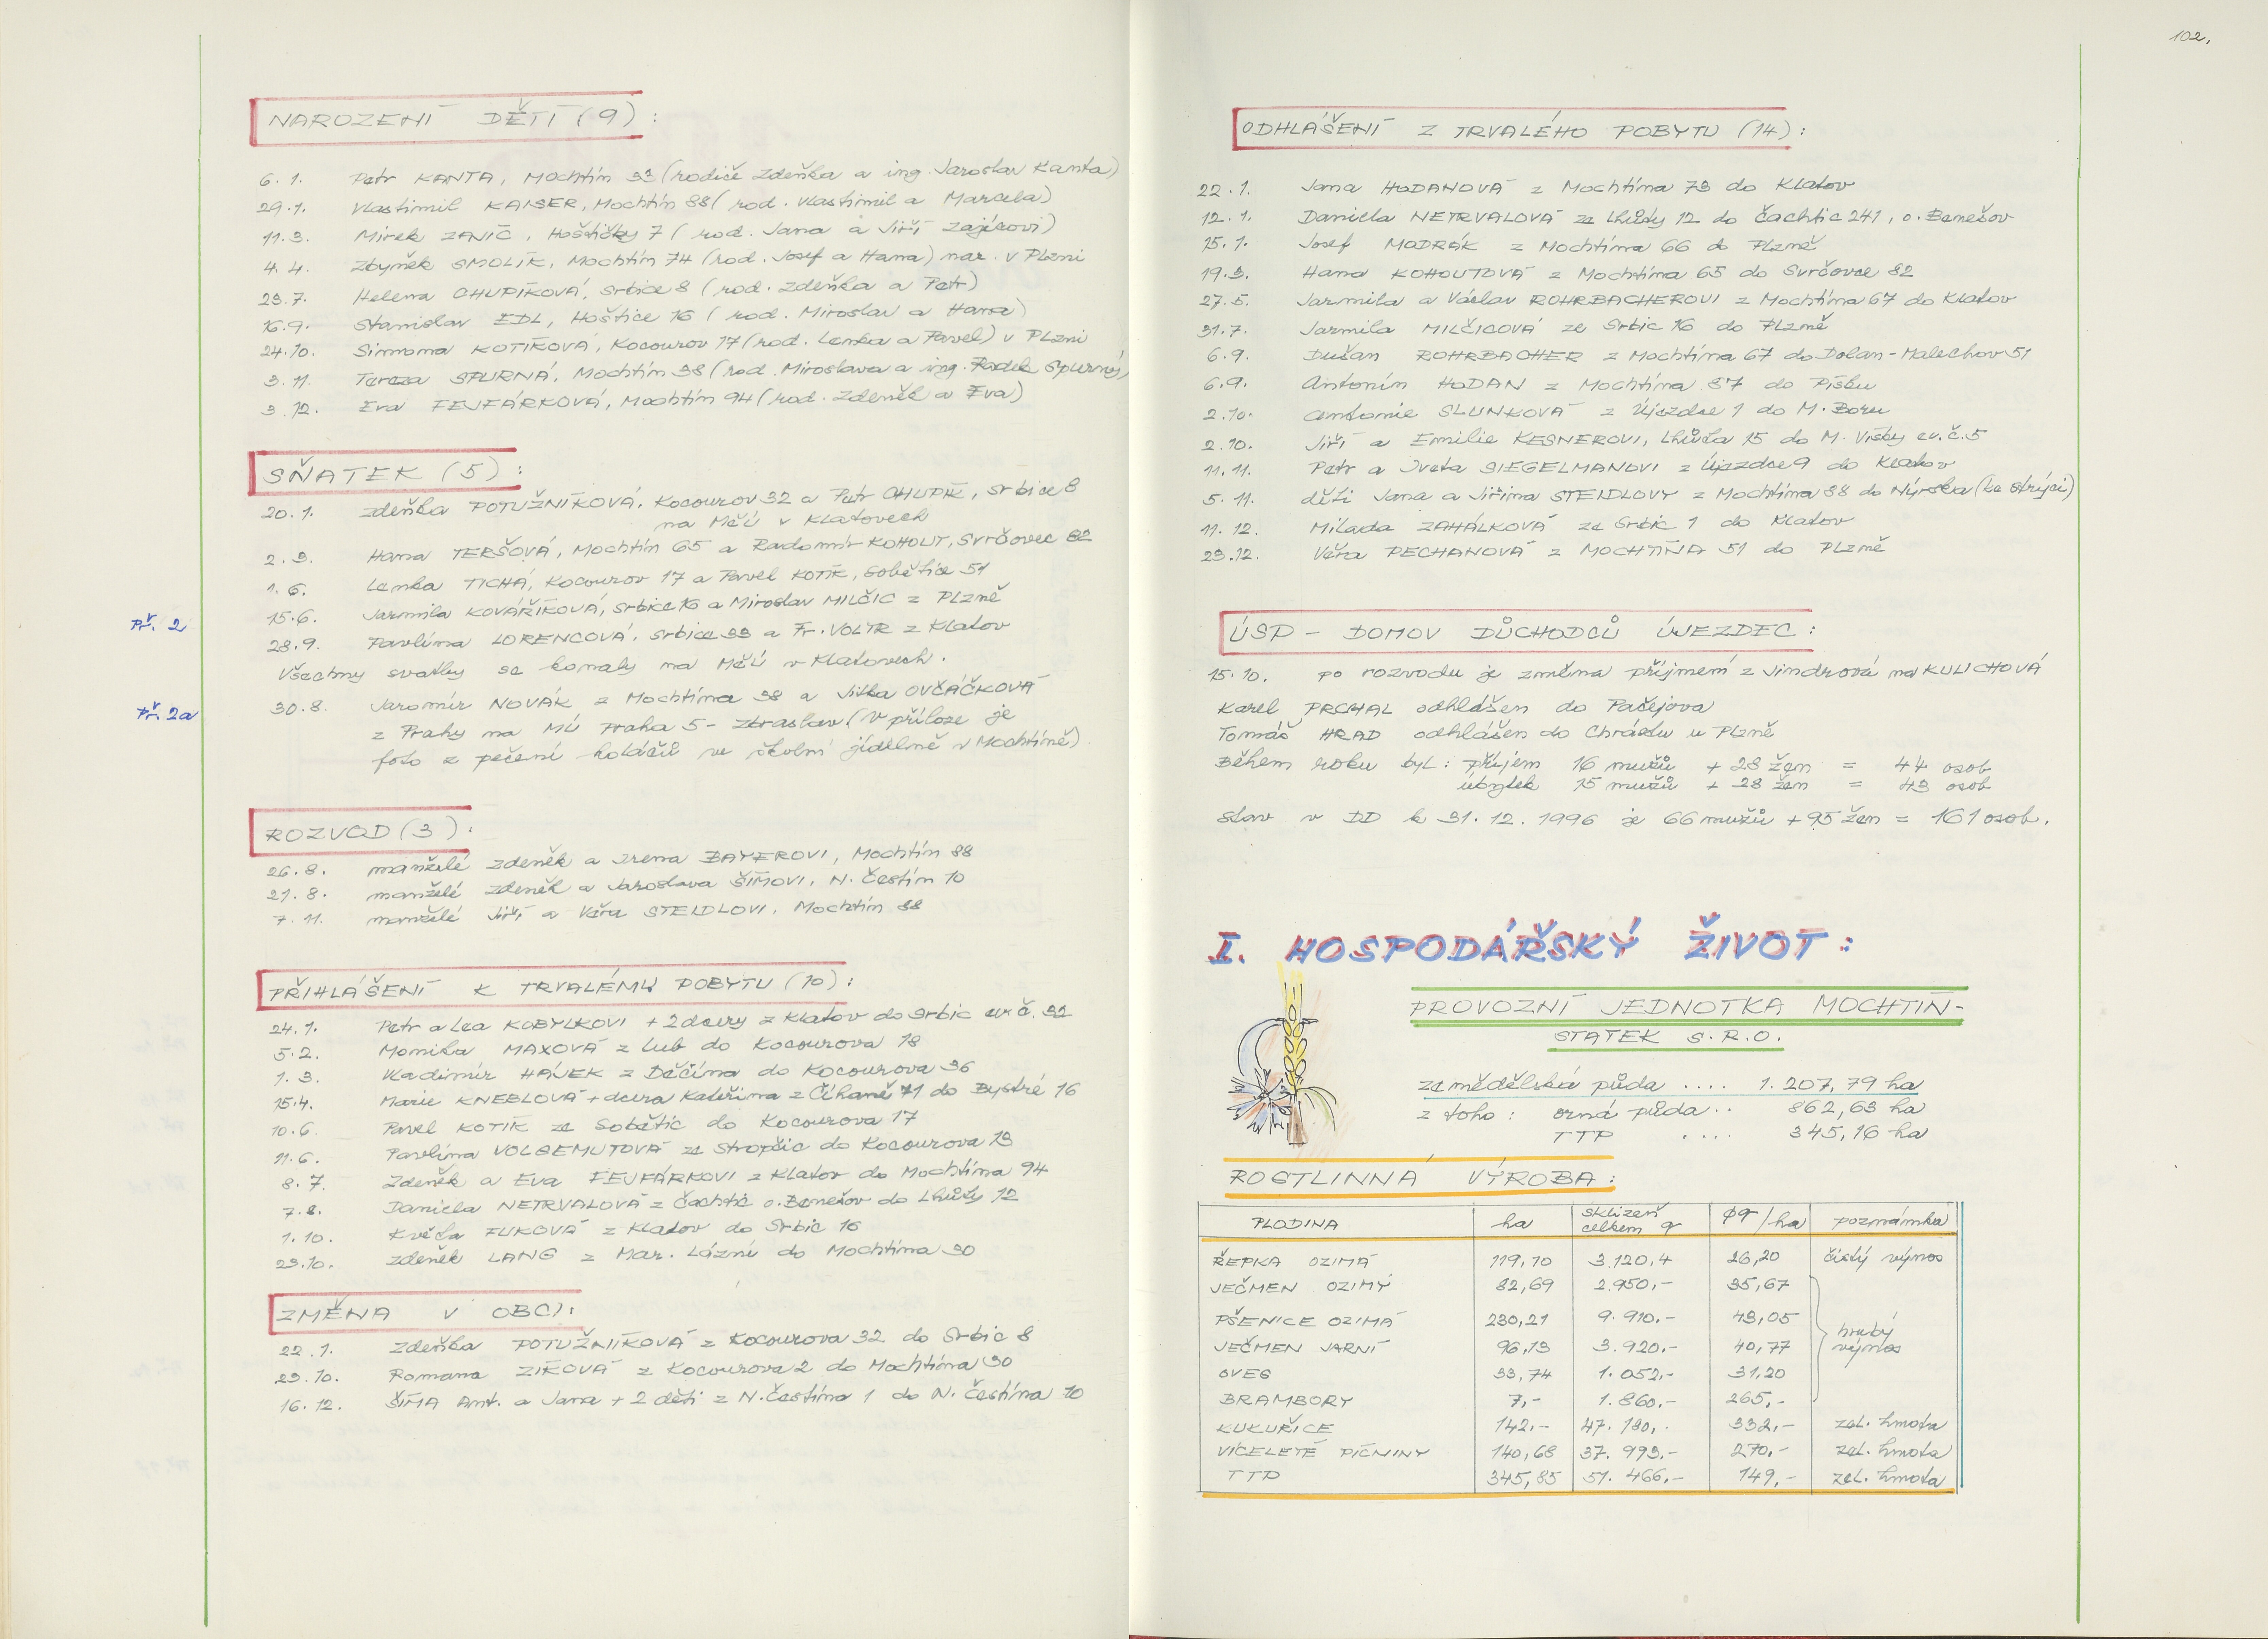 NAROZENÍ DĚTÍ (9) :
6. 1. Petr KANTA, Mochtín 33 (rodiče Zdeňka a ing. Jaroslav Kanta)
29.1. Vlastimil KAISER, Mochtín 88 (rod. Vlastimil a Marcela)
11.3. Mirek ZANIČ, Hoštičky 7 (rod. Jana a Jiří Zajícovi)
4.4. Zbyněk SMOLÍK, Mochtín 74 (rod. Josef a Hana) nar. v Plzni
23.7. Helena CHUPÍKOVÁ, Srbice 8 (rod. Zdeňka a Petr)
16.9. Stanislav EDL, Hoštice 16 (rod. Miroslav a Hana)
24.10. Simona KOTÍKOVÁ, Kocourov 17 (rod. Lenka a Pavel) v Plzni
3.11. Tereza SPURNÁ, Mochtín 38 (rod. Miroslava a ing. Radek Spurný)
3.12. Eva FEJFÁRKOVÁ, Mochtín 94 (rod. Zdeněk a Eva)
SŇATEK (5) :
20.1. Zdeňka POTUŽNÍKOVÁ, Kocourov 32 a Petr CHUPÍK, Srbice 8
na MěÚ v Klatovech
2.3. Hana TERŠOVÁ, Mochtín 65 a Radomír KOHOUT, Svrčovec 82
1.6. Lenka TICHÁ, Kocourov 17 a Pavel KOTÍK, Sobětice 51
15.6. Jarmila KOVÁŘÍKOVÁ, Srbice 16 a Miroslav MILČIC z Plzně
Př. 2
28.9. Pavlína LORENCOVÁ, Srbice 33 a Fr. VOLTR z Klatov
Všechny svatby se konaly na MěÚ v Klatovech.
Př. 2a
30.8. Jaromír NOVÁK z Mochtína 38 a Jitka OVČÁČKOVÁ
z Prahy na MÚ Praha 5 - Zbraslav (v příloze je
foto z pečení koláčů ve školní jídelně v Mochtíně).
ROZVOD (3) :
26.8. manželé Zdeněk a Irena BAYEROVI, Mochtín 88
21.8. manželé Zdeněk a Jaroslava ŠÍMOVI, N. Čestín 10
7.11. manželé Jiří a Věra STEIDLOVI, Mochtín 88
PŘIHLÁŠENÍ K TRVALÉMU POBYTU (10) :
24.1. Petr a Lea KOBYLKOVI + 2 dcery z Klatov do Srbic ev.č. 32
5.2. Monika MAXOVÁ z Lub do Kocourova 18
1.3. Vladimír HÁJEK z Děčína do Kocourova 36
15.4. Marie KNEBLOVÁ + dcera Kateřina z Číhaně 71 do Bystré 16
10.6. Pavel KOTÍK ze Sobětic do Kocourova 17
11.6. Pavlína VOLGEMUTOVÁ ze Stropčic do Kocourova 13
8.7. Zdeněk a Eva FEJFÁRKOVI z Klatov do Mochtína 94
7.8. Daniela NETRVALOVÁ z Čachtic o. Benešov do Lhůty 12
1.10. Květa FUKOVÁ z Klatov do Srbic 16
23.10. Zdeněk LANG z Mar. Lázní do Mochtína 30
ZMĚNA V OBCI:
22.1. Zdeňka POTUŽNÍKOVÁ z Kocourova 32 do Srbic 8
23.10. Romana ZÍKOVÁ z Kocourova 2 do Mochtína 30
16.12. ŠÍMA Ant. a Jana + 2 děti z N. Čestína 1 do N. Čestína 10
102.
ODHLÁŠENÍ Z TRVALÉHO POBYTU (14) :
22.1. Jana HODANOVÁ z Mochtína 73 do Klatov
12.1. Daniela NETRVALOVÁ ze Lhůty 12 do Čachtic 241, o. Benešov
15.1. Josef MODRÁK z Mochtína 66 do Plzně
19.3. Hana KOHOUTOVÁ z Mochtína 65 do Svrčovce 82
27.5. Jarmila a Václav ROHRBACHEROVI z Mochtína 67 do Klatov
31.7. Jarmila MILČICOVÁ ze Srbic 16 do Plzně
6.9. Dušan ROHRBACHER z Mochtína 67 do Dolan-Malechov 51
6.9. Antonín HODAN z Mochtína 87 do Písku
2.10. Antonie SLUNKOVÁ z Újezdce 1 do M. Boru
2.10. Jiří a Emilie KESNEROVI, Lhůta 15 do M. Visky ev.č. 5
11.11. Petr a Iveta SIEGELMANOVI z Újezdce 9 do Klatov
5.11. děti Jana a Jiřina STEIDLOVY z Mochtína 88 do Nýrska (ke strýci)
11.12. Milada ZAHÁLKOVÁ ze Srbic 1 do Klatov
23.12. Věra PECHANOVÁ z MOCHTÍNA 51 do Plzně
ÚSP - DOMOV DŮCHODCŮ ÚJEZDEC :
15.10. po rozvodu je změna příjmení z Jindrová na KULICHOVÁ
Karel PRCHAL odhlášen do Pačejova
Tomáš HRAD odhlášen do Chrástu u Plzně
Během roku byl : příjem 16 mužů + 28 žen = 44 osob
úbytek 15 mužů + 28 žen = 43 osob
stav v DD k 31.12.1996 je 66 mužů + 95 žen = 161 osob.
I. HOSPODÁŘSKÝ ŽIVOT :
PROVOZNÍ JEDNOTKA MOCHTÍN -
STATEK S.R.O.
zemědělská půda .... 1.207,79 ha
z toho : orná půda .. 862,63 ha
TTP .... 345,16 ha
ROSTLINNÁ VÝROBA :
PLODINA ha sklizeň celkem q φq/ha poznámka
ŘEPKA OZIMÁ 119,10 3.120,4 26,20 čistý výnos
JEČMEN OZIMÝ 82,69 2.950,- 35,67
PŠENICE OZIMÁ 230,21 9.910,- 43,05
hrubý výnos
JEČMEN JARNÍ 96,13 3.920,- 40,77
OVES 33,74 1.052,- 31,20
BRAMBORY 7,- 1.860,- 265,-
KUKUŘICE 142,- 47.130,- 332,- zel. hmota
VÍCELETÉ PÍCNINY 140,68 37.993,- 270,- zel. hmota
TTP 345,85 51.466,- 149,- zel. hmota